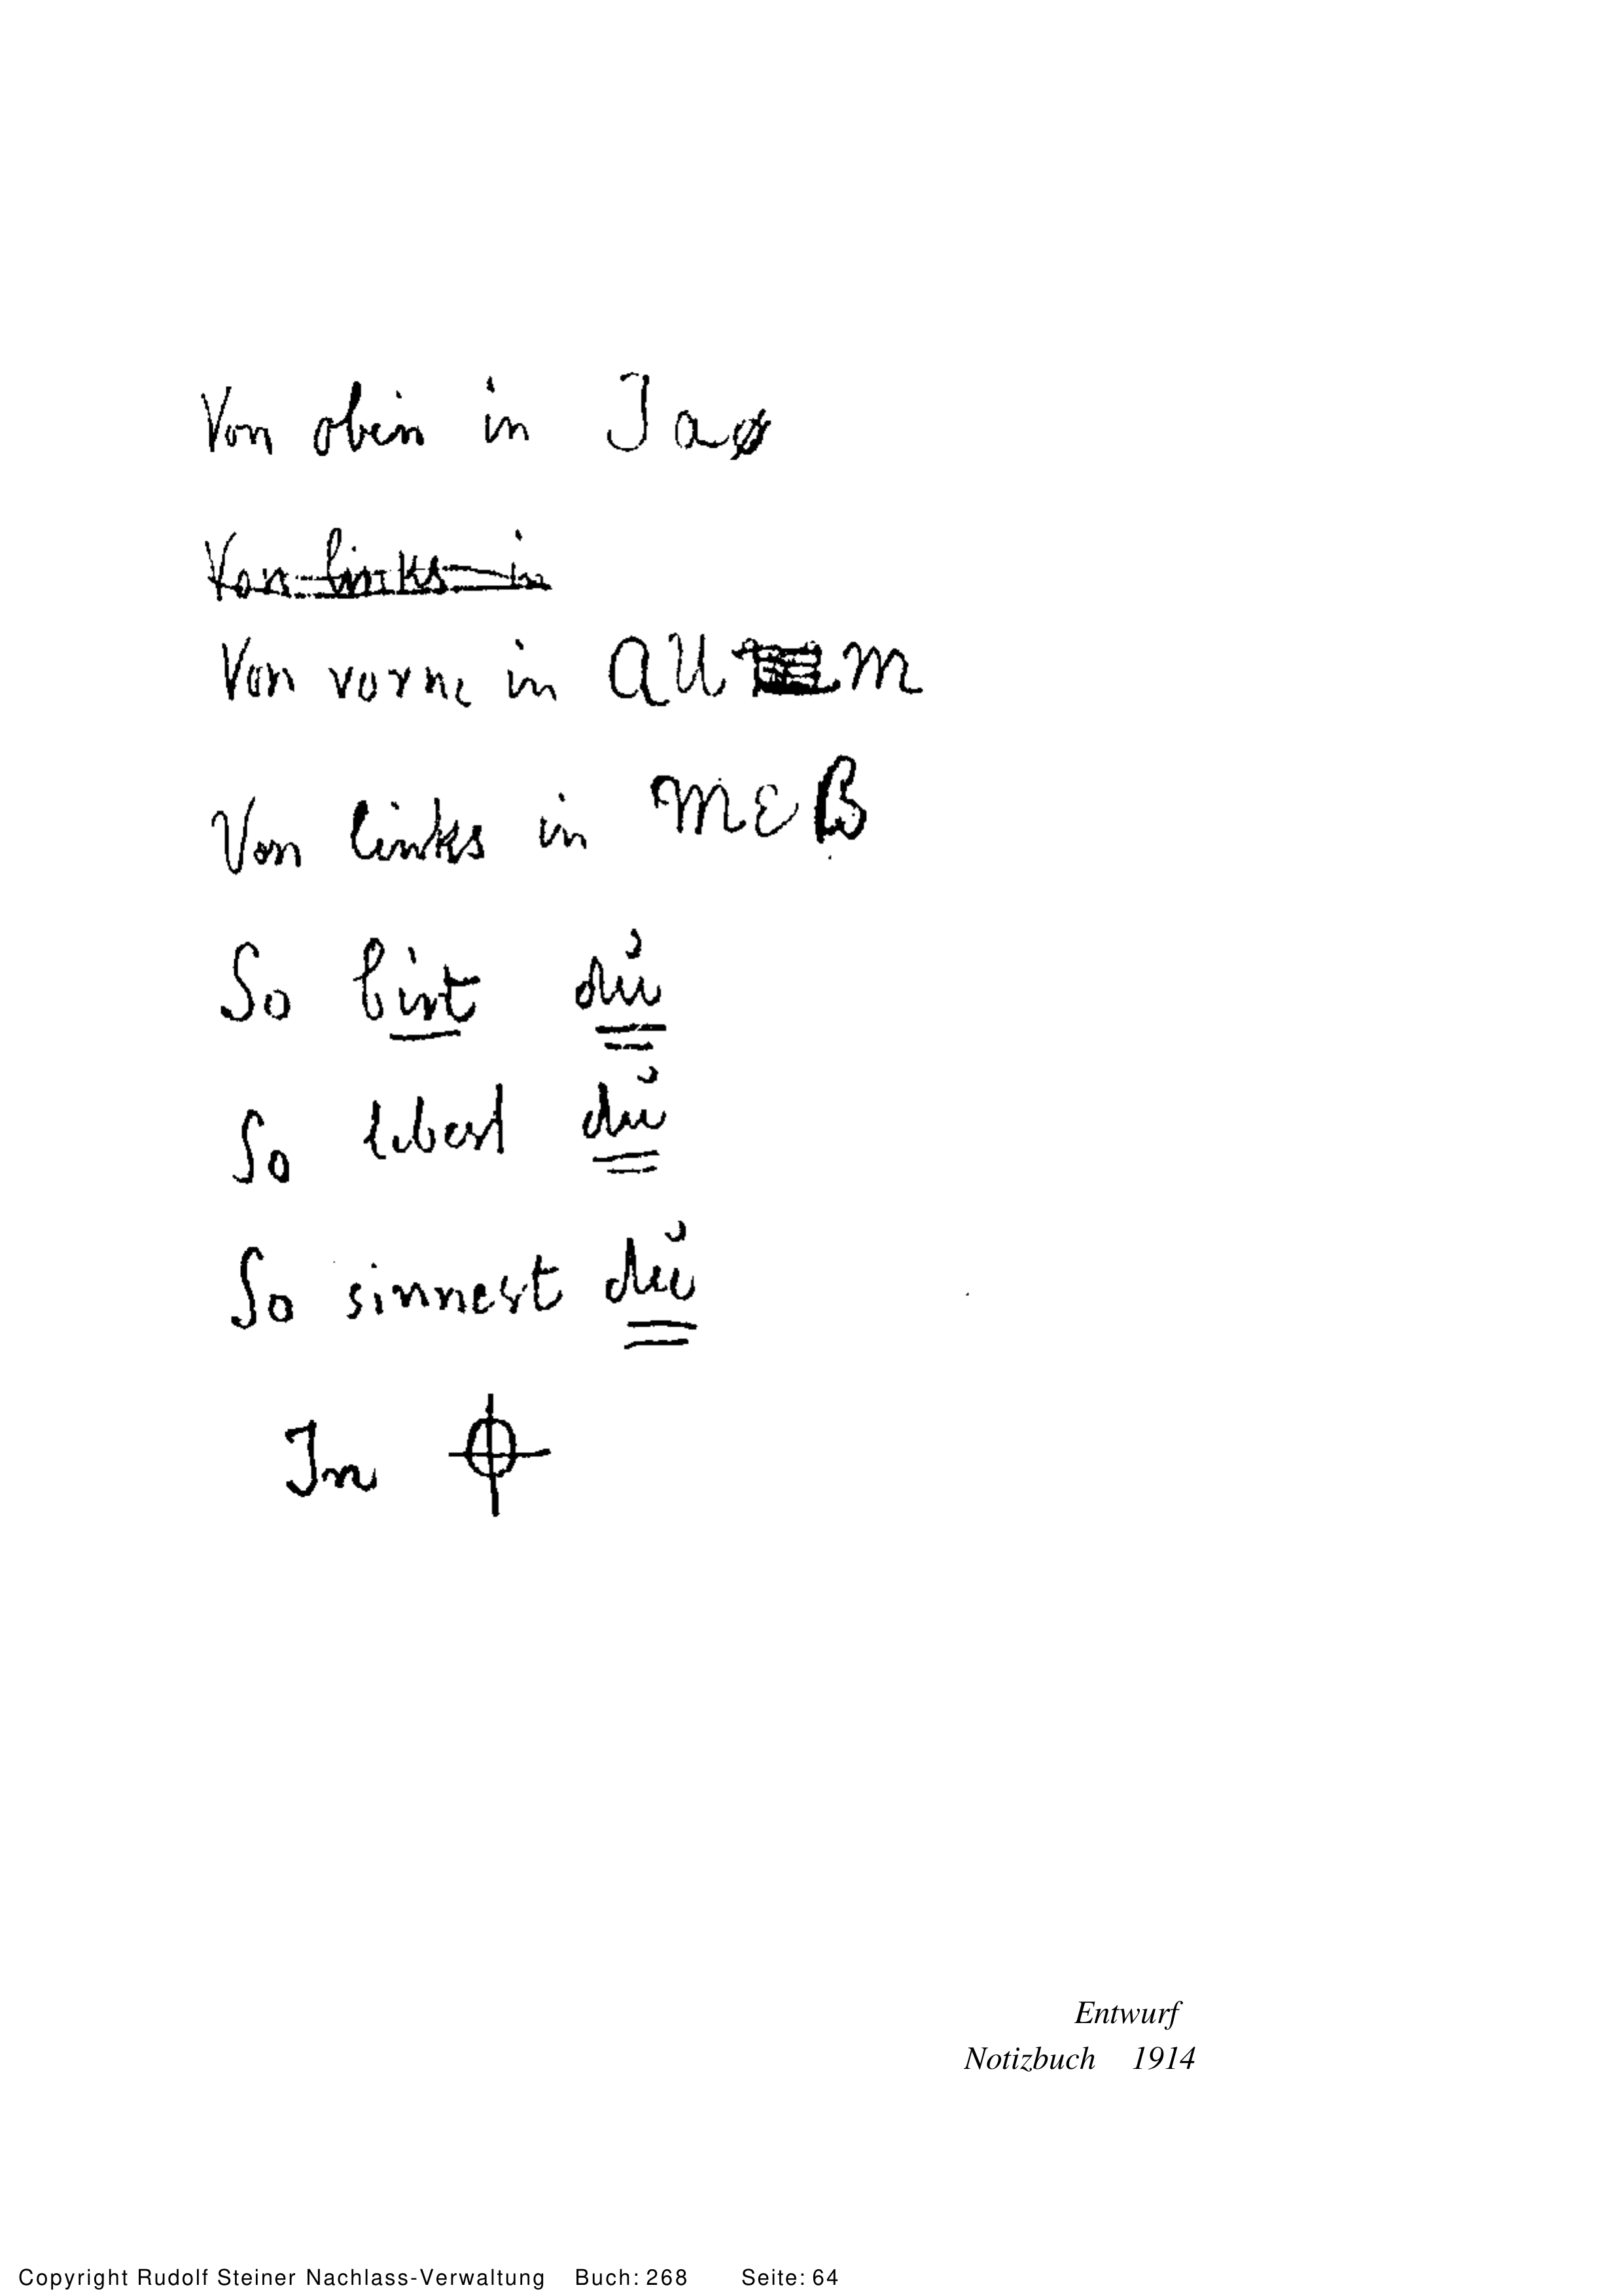 Von oben in Jao
Von links in
Von vorne in AUM
Von links in MEB
So bist dŭ
So lebest dŭ
So sinnest dŭ
In
Entwurf
Notizbuch 1914
Copyright Rudolf Steiner Nachlass-Verwaltung Buch: 268 Seite: 64